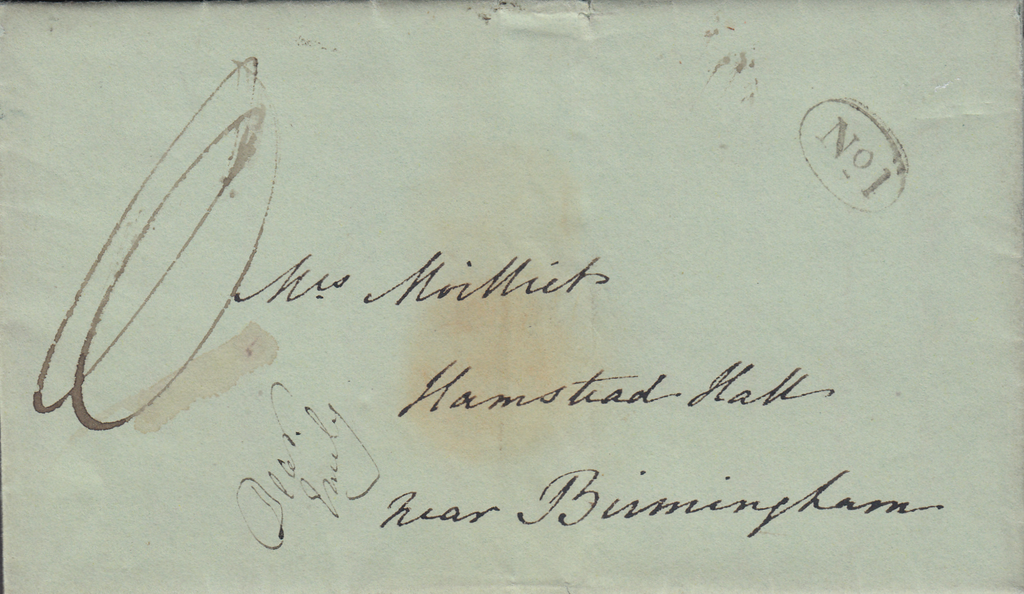 No 1
Mrs Moilliet
Hamstead Hall
near Birmingham
Dear
Emily